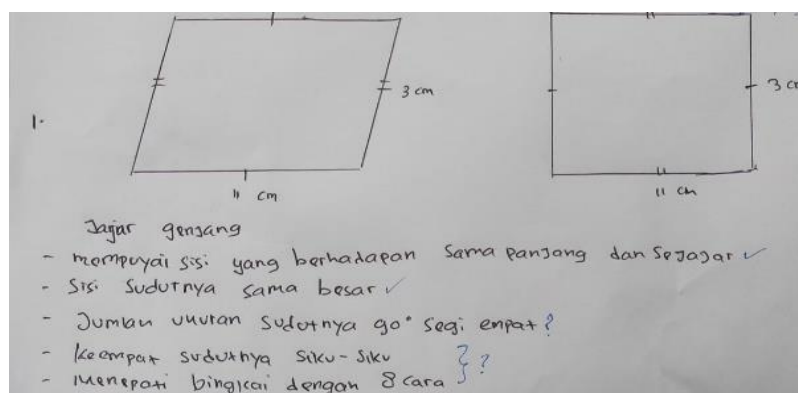 3 cm
3 cm
1.
11 cm
11 cm
Jajar genjang
- mempuyai sisi yang berhadapan sama panjang dan sejajar ✓
- Sisi sudutnya sama besar ✓
- Jumlah ukuran sudutnya 90° segi empat ?
- Keempat sudutnya siku-siku
- Menepati bingkai dengan 8 cara } ?